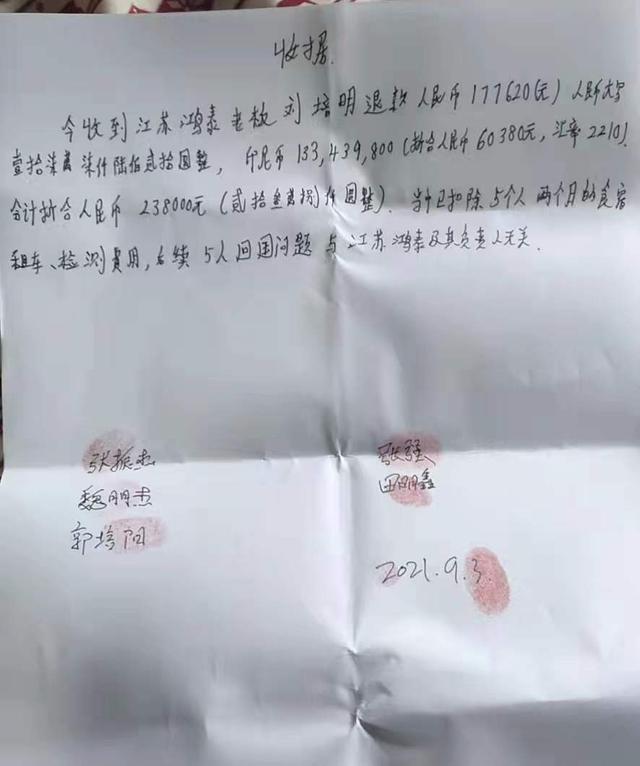 收据
今收到江苏鸿泰老板刘培明退款人民币177620(元)人民币大写
壹拾柒萬柒仟陆佰贰拾圆整, 印尼币133,439,800(折合人民币60380元,汇率2210).
合计折合人民币 238000元(贰拾叁萬捌仟圆整). 当中已扣除5个人两个月的食宿
租车、检测费用,后续5人回国问题与江苏鸿泰及其负责人无关.
张振杰 张强
魏明杰 田明鑫
郭培阳
2021.9.3